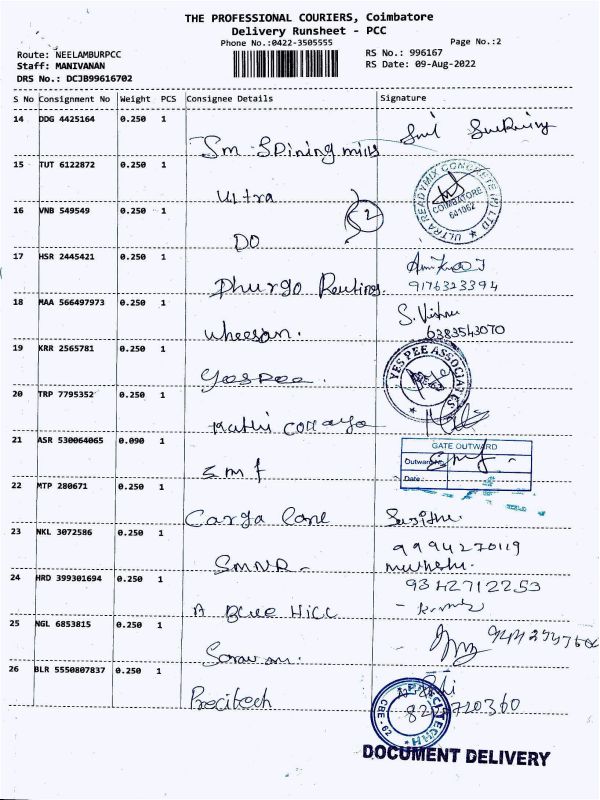 THE PROFESSIONAL COURIERS, Coimbatore
Delivery Runsheet - PCC
Phone No.:0422-3505555
Page No.:2
Route: NEELAMBURPCC
RS No.: 996167
Staff: MANIVANAN
RS Date: 09-Aug-2022
DRS No.: DCJB99616702
S No Consignment No Weight PCS Consignee Details Signature
14 DDG 4425164 0.250 1
Sm Spining mills
15 TUT 6122872 0.250 1
Ultra
ULTRA READYMIX CONCRETE (P) LTD
COIMBATORE
641062
16 VNB 549549 0.250 1
2
DO
17 HSR 2445421 0.250 1
9176323394
18 MAA 566497973 0.250 1
S. Vishnu
wheesan.
6383543070
19 KRR 2565781 0.250 1
Yespee.
YES PEE ASSOCIATES
20 TRP 7795352 0.250 1
21 ASR 530064065 0.090 1
GATE OUTWARD
Outward No
Date:
smf
22 MTP 280671 0.250 1
Carga Cane
23 NKL 3072586 0.250 1
9994270119
SMNR
24 HRD 399301694 0.250 1
9342712253
A Blue Hill
25 NGL 6853815 0.250 1
26 BLR 5550807837 0.250 1
Precitech
CBE - 62
DOCUMENT DELIVERY